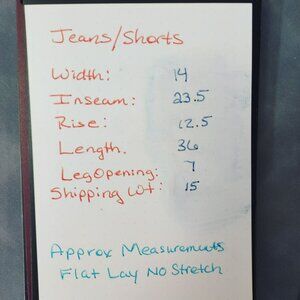 Jeans/Shorts
Width: 14
Inseam: 23.5
Rise: 12.5
Length. 36
Leg Opening: 7
Shipping Wt: 15
Approx Measurements
Flat Lay No Stretch